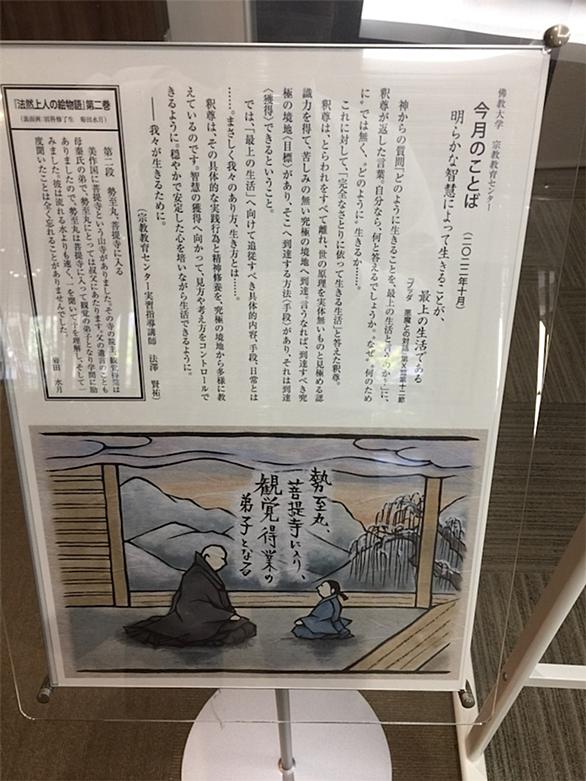 佛教大学 宗教教育センター
今月のことば (二〇二二年十月)
明らかな智慧によって生きることが、
最上の生活である
『ブッダ 悪魔との対話』第Ⅹ篇第十二節
神からの質問「どのように生きることを、最上の生活と言うのか?」に、
釈尊が返した言葉。自分なら、何と答えるでしょうか。なぜ、何のため
に、では無く、どのように生きるか……。
これに対して、「完全なさとりに依って生きる生活」と答えた釈尊。
釈尊は、とらわれをすべて離れ、世の原理を実体無いものと見極める認
識力を得て、苦しみの無い究極の境地へ到達。言うなれば、到達すべき究
極の境地(目標)があり、そこへ到達する方法(手段)があり、それは到達
(獲得)できるということ。
では、「最上の生活」へ向けて追従すべき具体的内容、手段、日常とは
……。まさしく我々のあり方、生き方とは……。
釈尊は、その具体的な実践行為と精神修養を、究極の境地から多様に教
えているのです。智慧の獲得へ向かって、見方や考え方をコントロールで
きるように。穏やかで安定した心を培いながら生活できるように。
―― 我々が生きるために。
(宗教教育センター実習指導講師 法澤 賢祐)
『法然上人の絵物語』第二巻
第二段 勢至丸、菩提寺に入る
美作国に菩提寺という山寺がありました。その寺の院主・観覚得業は
母秦氏の弟で、勢至丸にとっては叔父にあたります。父の遺言のことも
ありましたので、勢至丸は菩提寺に入って観覚の弟子となり学問に励
みました。彼は流れる水よりも速く、一を聞いて十を理解し、そして一
度聞いたことは全く忘れることがありませんでした。
菊田 水月
勢至丸、
菩提寺に入り、
観覚得業の
弟子となる